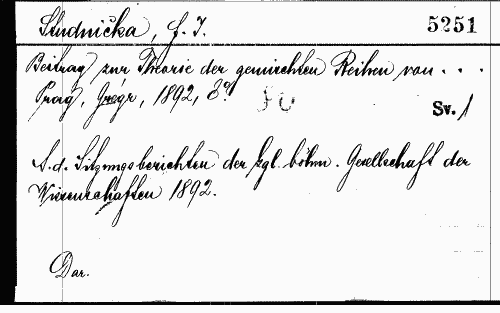 Studnička, F. J. 5251
Beitrag zur Theorie der gemischten Reihen von . . .
Prag, Grégr, 1892, 8° Sv. 1
S.d. Sitzungsberichten der kgl. böhm. Gesellschaft der
Wissenschaften 1892.
Dar.